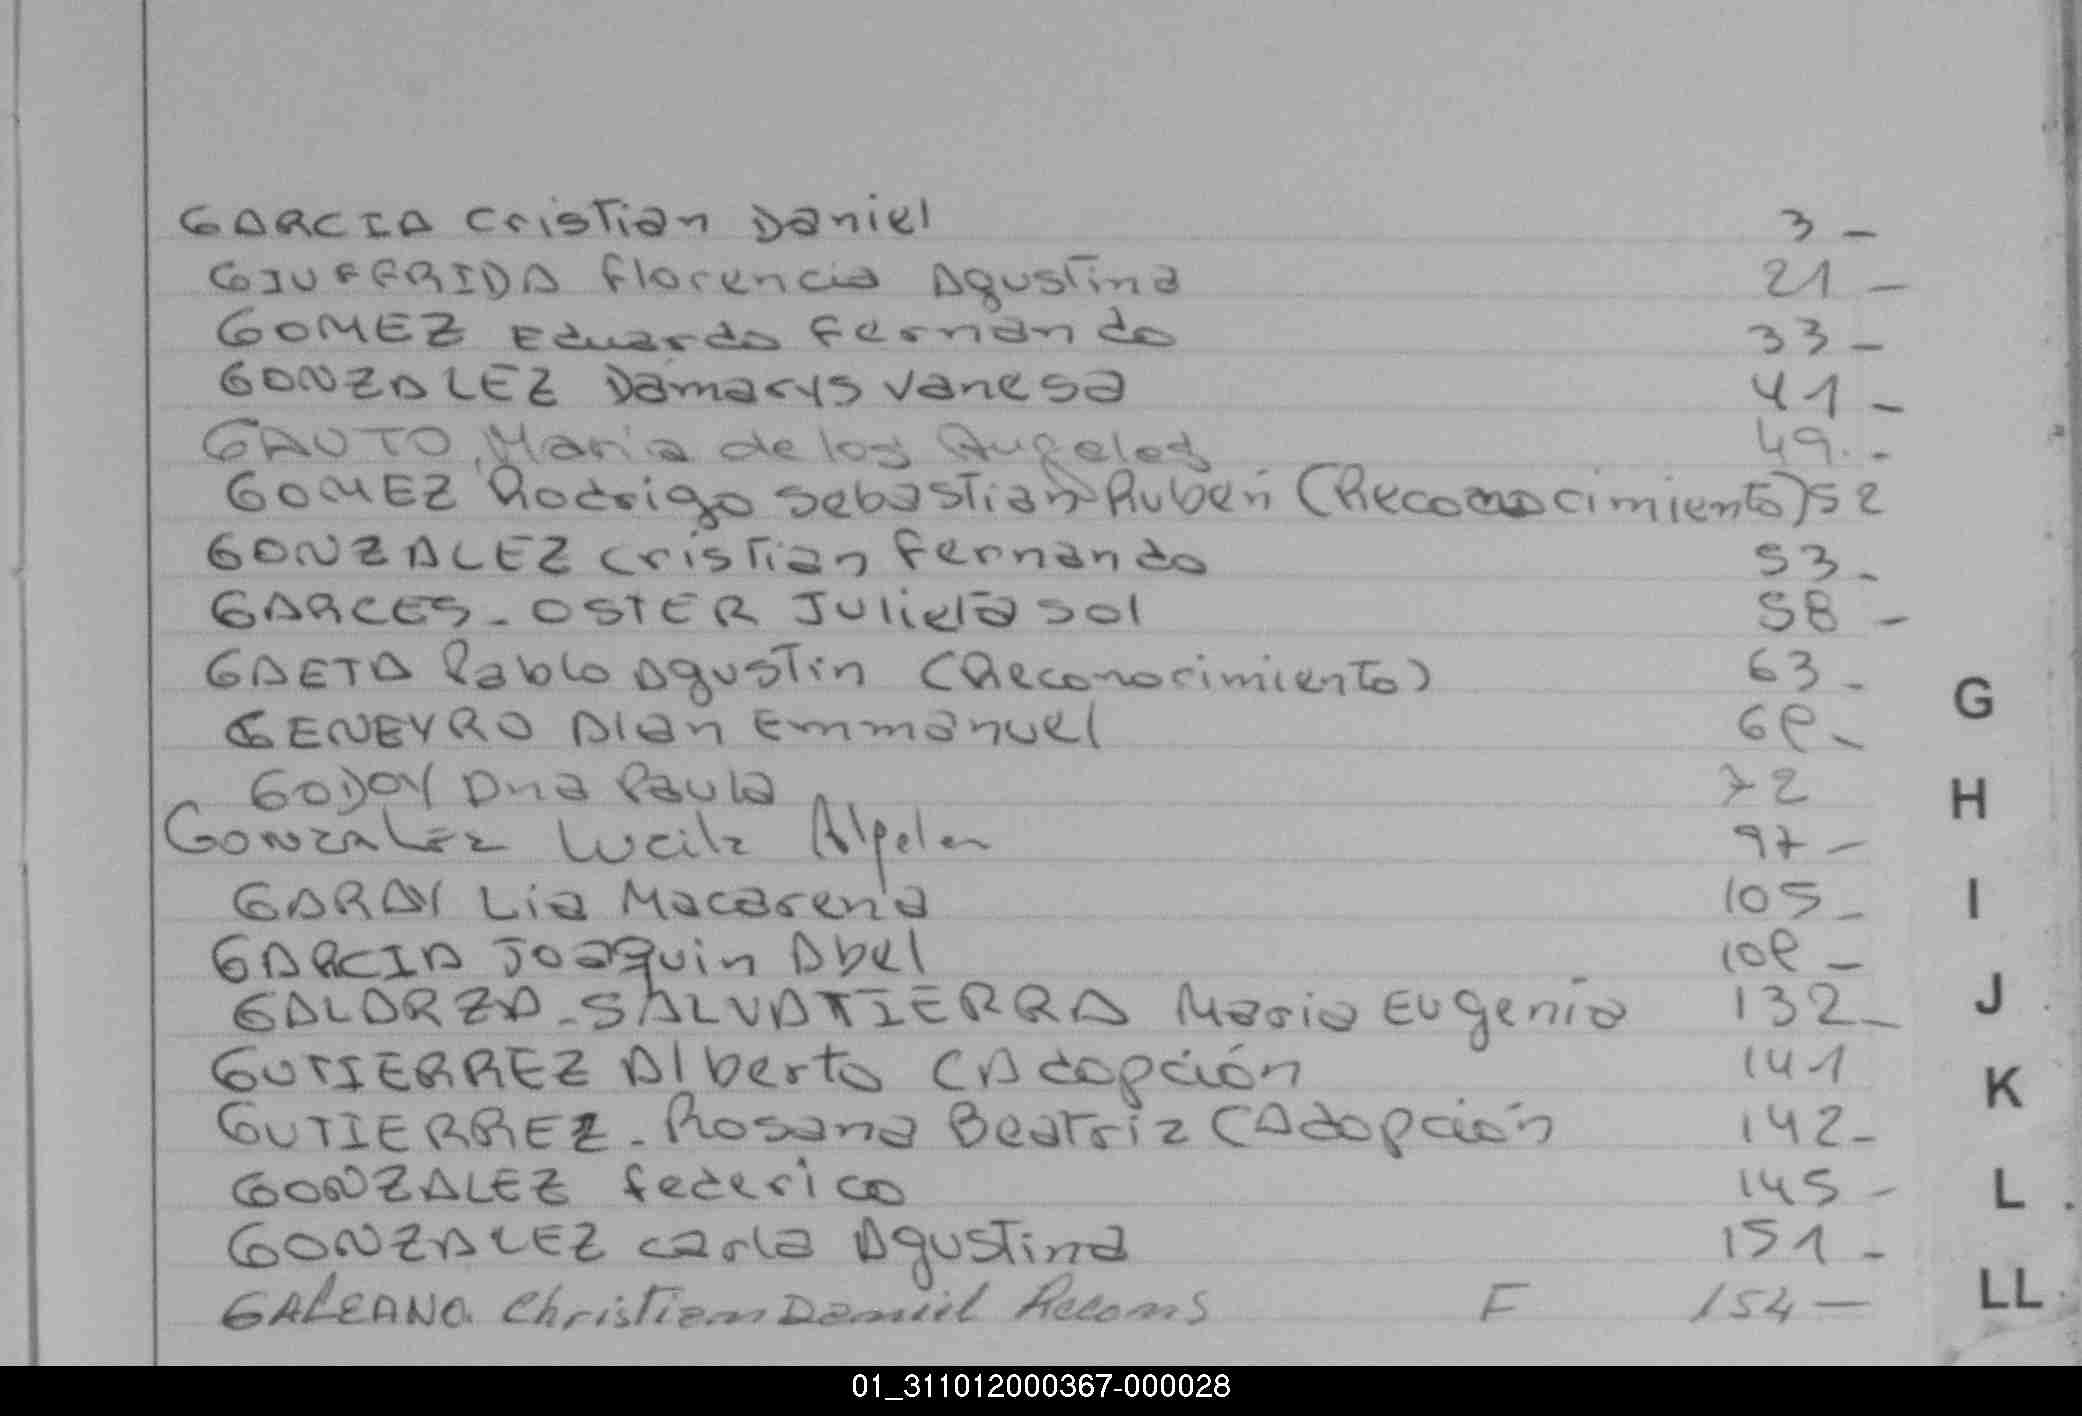 GARCIA Cristian Daniel 3 -
GIUFFRIDA Florencia Agustina 21 -
GOMEZ Eduardo Fernando 33 -
GONZALEZ Damarys Vanesa 41 -
GAUTO Maria de los Angeles 49.-
GOMEZ Rodrigo Sebastian Ruben (Reconocimiento) 52
GONZALEZ Cristian Fernando 53 -
GARCES - OSTER Julieta Sol 58 -
GAETA Pablo Agustin (Reconocimiento) 63 -
GENEYRO Alan Emmanuel 69 -
GODOY Ana Paula 72
GONZALEZ Lucila 97 -
GARAY Lia Macarena 105 -
GARCIA Joaquin Abel 109 -
GALARZA - SALVATIERRA Maria Eugenia 132 -
GUTIERREZ Alberto (Adopción 141
GUTIERREZ - Rosana Beatriz (Adopción 142 -
GONZALEZ Federico 145 -
GONZALEZ Carla Agustina 151 -
GALEANO. Christian Daniel F 154 -
G
H
I
J
K
L
LL
01_311012000367-000028